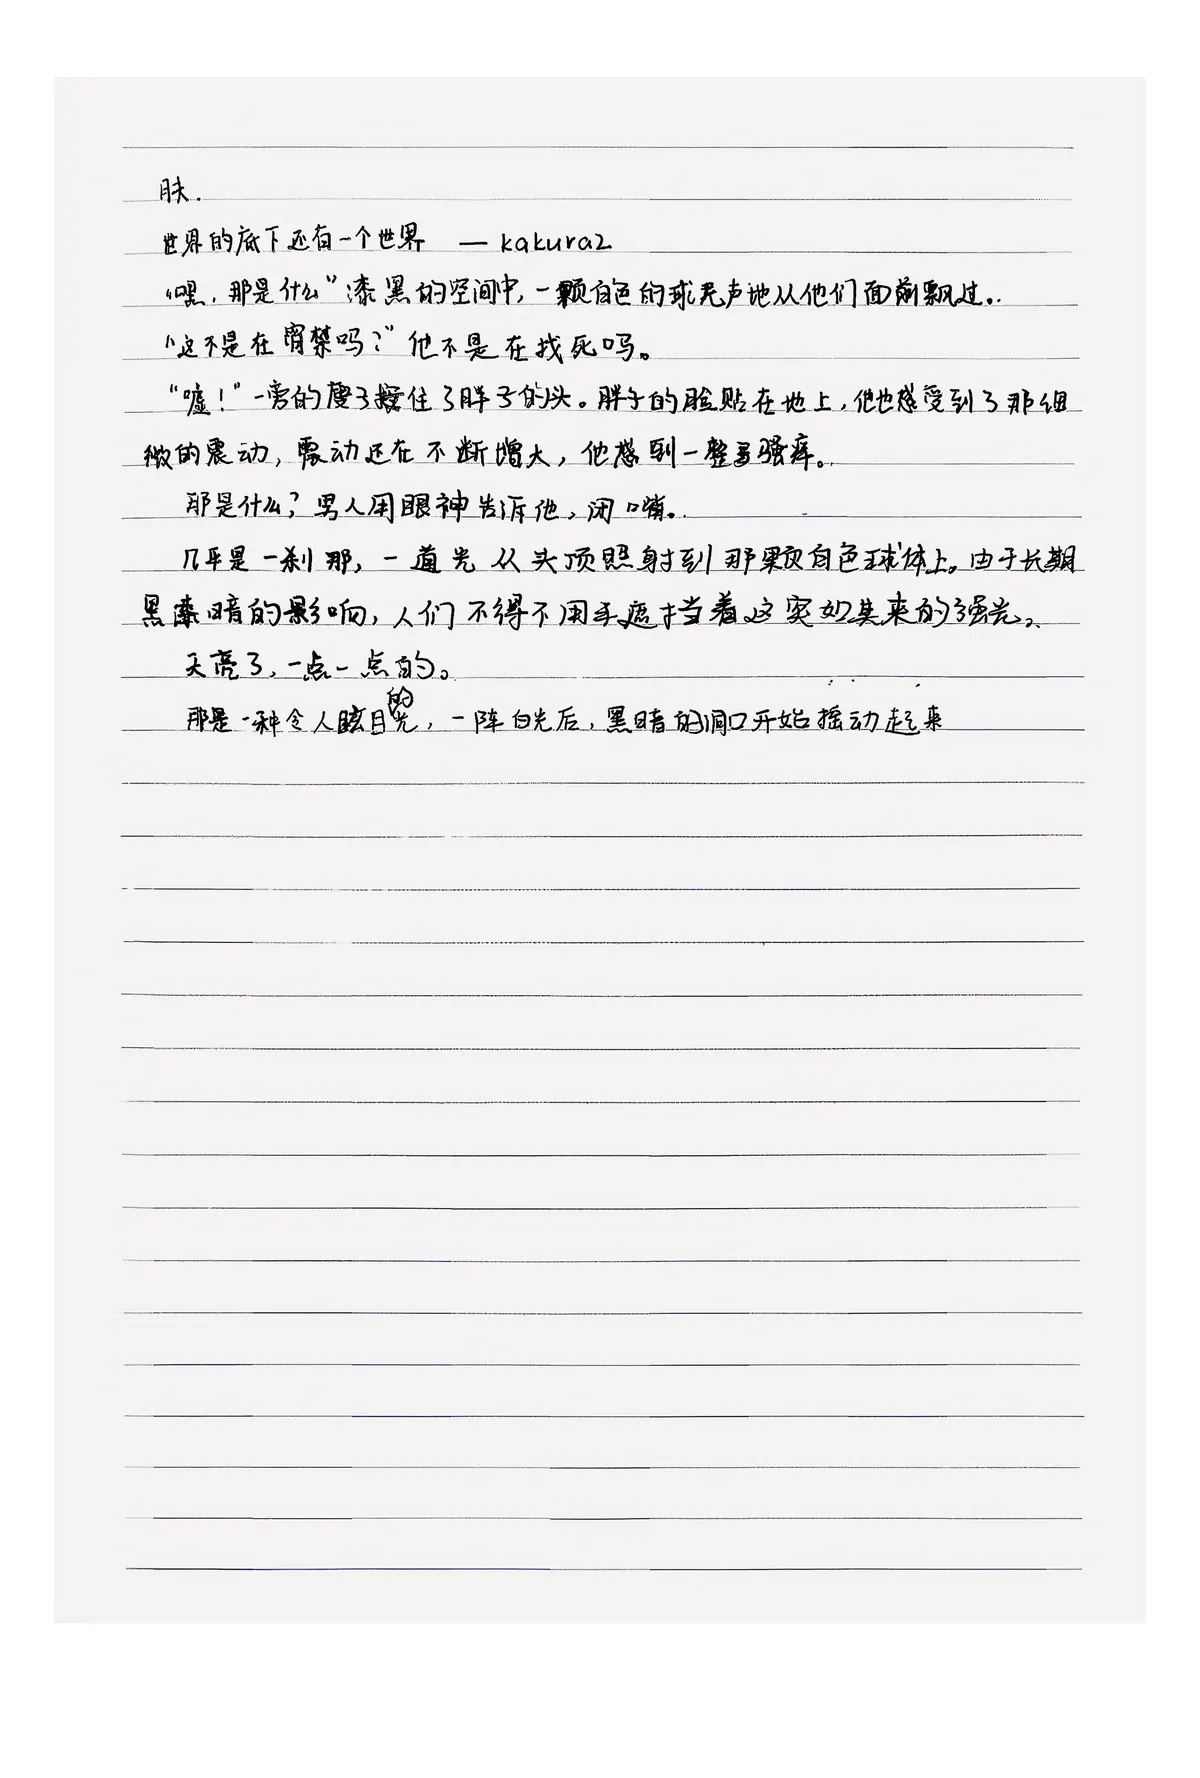 肤.
世界的底下还有一个世界 — kakura2
“嘿，那是什么”漆黑的空间中，一颗白色的球无声地从他们面前飘过。
“这不是在宵禁吗？”他不是在找死吗。
“嘘！”一旁的瘦子按住了胖子的头。胖子的脸贴在地上，他也感受到了那细
微的震动，震动还在不断增大，他感到一整骚痒。
那是什么？男人用眼神告诉他，闭嘴。
几乎是一刹那，一道光从头顶照射到那颗白色球体上。由于长期
黑暗的影响，人们不得不用手遮挡着这突如其来的强光。
天亮了，一点一点的。
那是一种令人眩目的光，一阵白光后，黑暗的洞口开始摇动起来